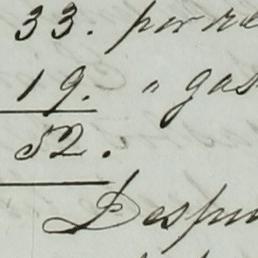 33. por re
19. " gas
52.
Despu